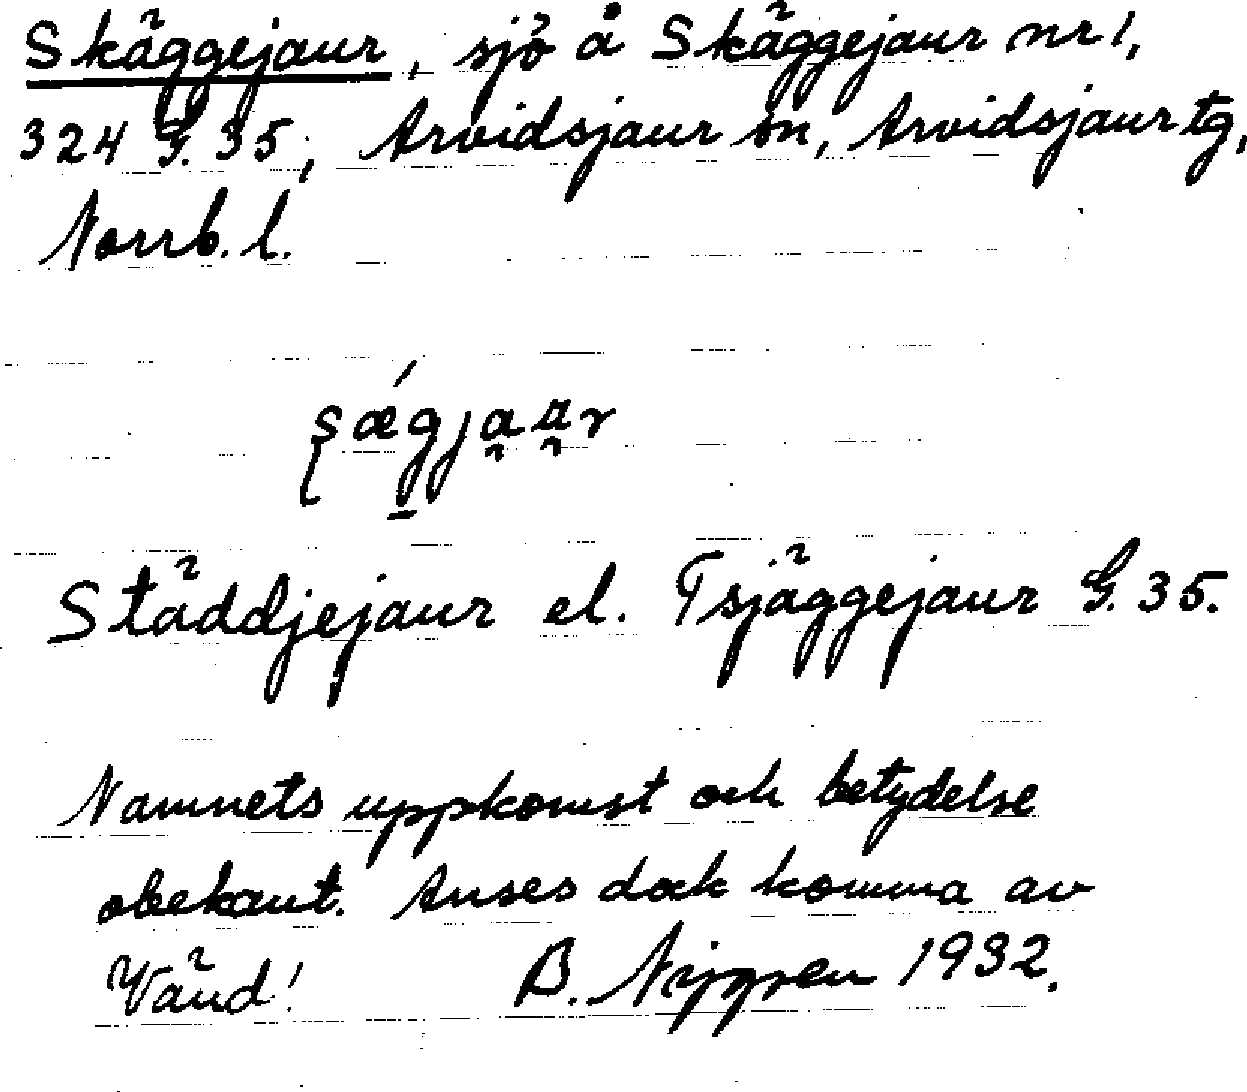 Skäggejaur, sjö å Skäggejaur nr 1,
324 G. 35, Arvidsjaur sn, Arvidsjaur tg,
Norrb. l.
ʂǽgja̯a̯r
Städdjejaur el. Tsjäggejaur G. 35.
Namnets uppkomst och betydelse
obekant. Anses dock komma av
Vänd! B. Nygren 1932.